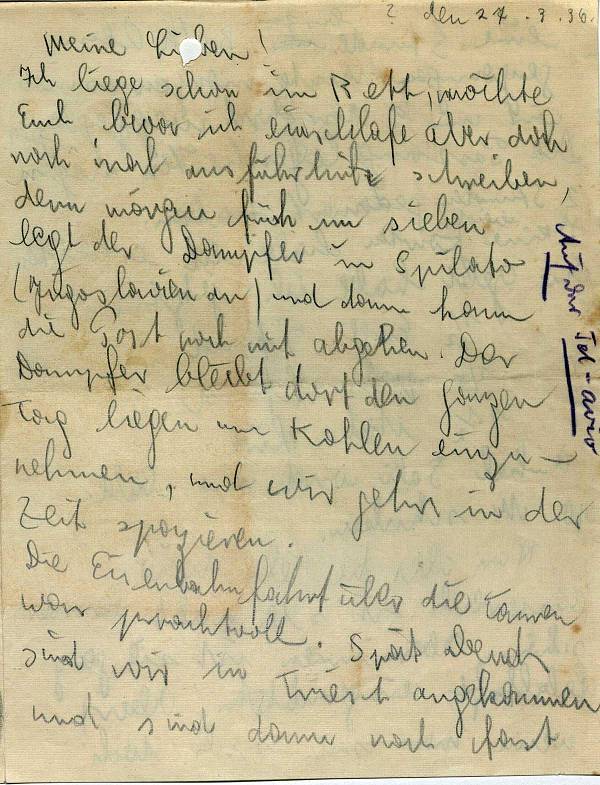 ? den 27. 3. 36.
Meine Lieben!
Ich liege schon im Bett, möchte
Euch bevor ich einschlafe aber doch
noch mal ausführlich schreiben,
denn morgen früh um sieben
legt der Dampfer in Spilato
(Jugoslavien an) und dann kann
die Post noch mit abgehen. Der
Dampfer bleibt dort den ganzen
Tag liegen um Kohlen einzu-
nehmen, und wir gehn in der
Zeit spazieren.
Die Eisenbahnfahrt über die Tauern
war prachtvoll. Spät abends
sind wir in Triest angekommen
und sind dann noch fast
Auf der Tel-aviv